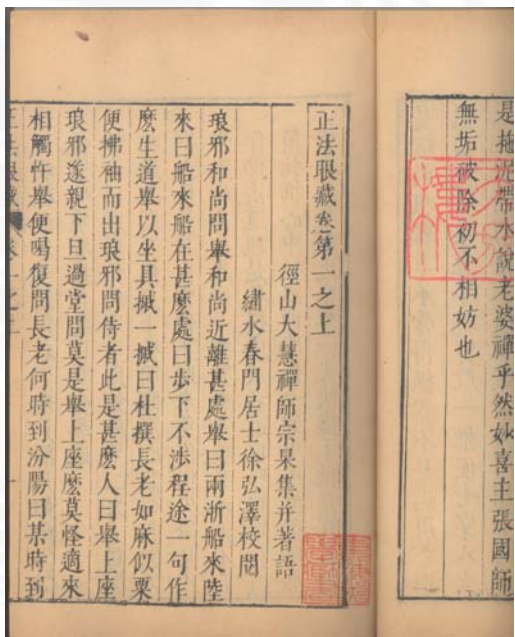 是拖泥帶水說老婆禪乎然妙喜主張國師
無垢破除初不相妨也
正法眼藏卷第一之上
徑山大慧禪師宗杲集并著語
繡水春門居士徐弘澤校閱
琅邪和尚問舉和尚近離甚處舉曰兩浙船來陸
來曰船來船在甚麽處曰步下不涉程途一句作
麽生道舉以坐具摵一摵曰杜撰長老如麻似粟
便拂袖而出琅邪問侍者此是甚麽人曰舉上座
琅邪遂親下旦過堂問莫是舉上座麽莫怪適來
相觸忤舉便喝復問長老何時到汾陽曰某時到
正法眼藏 卷一之上 一